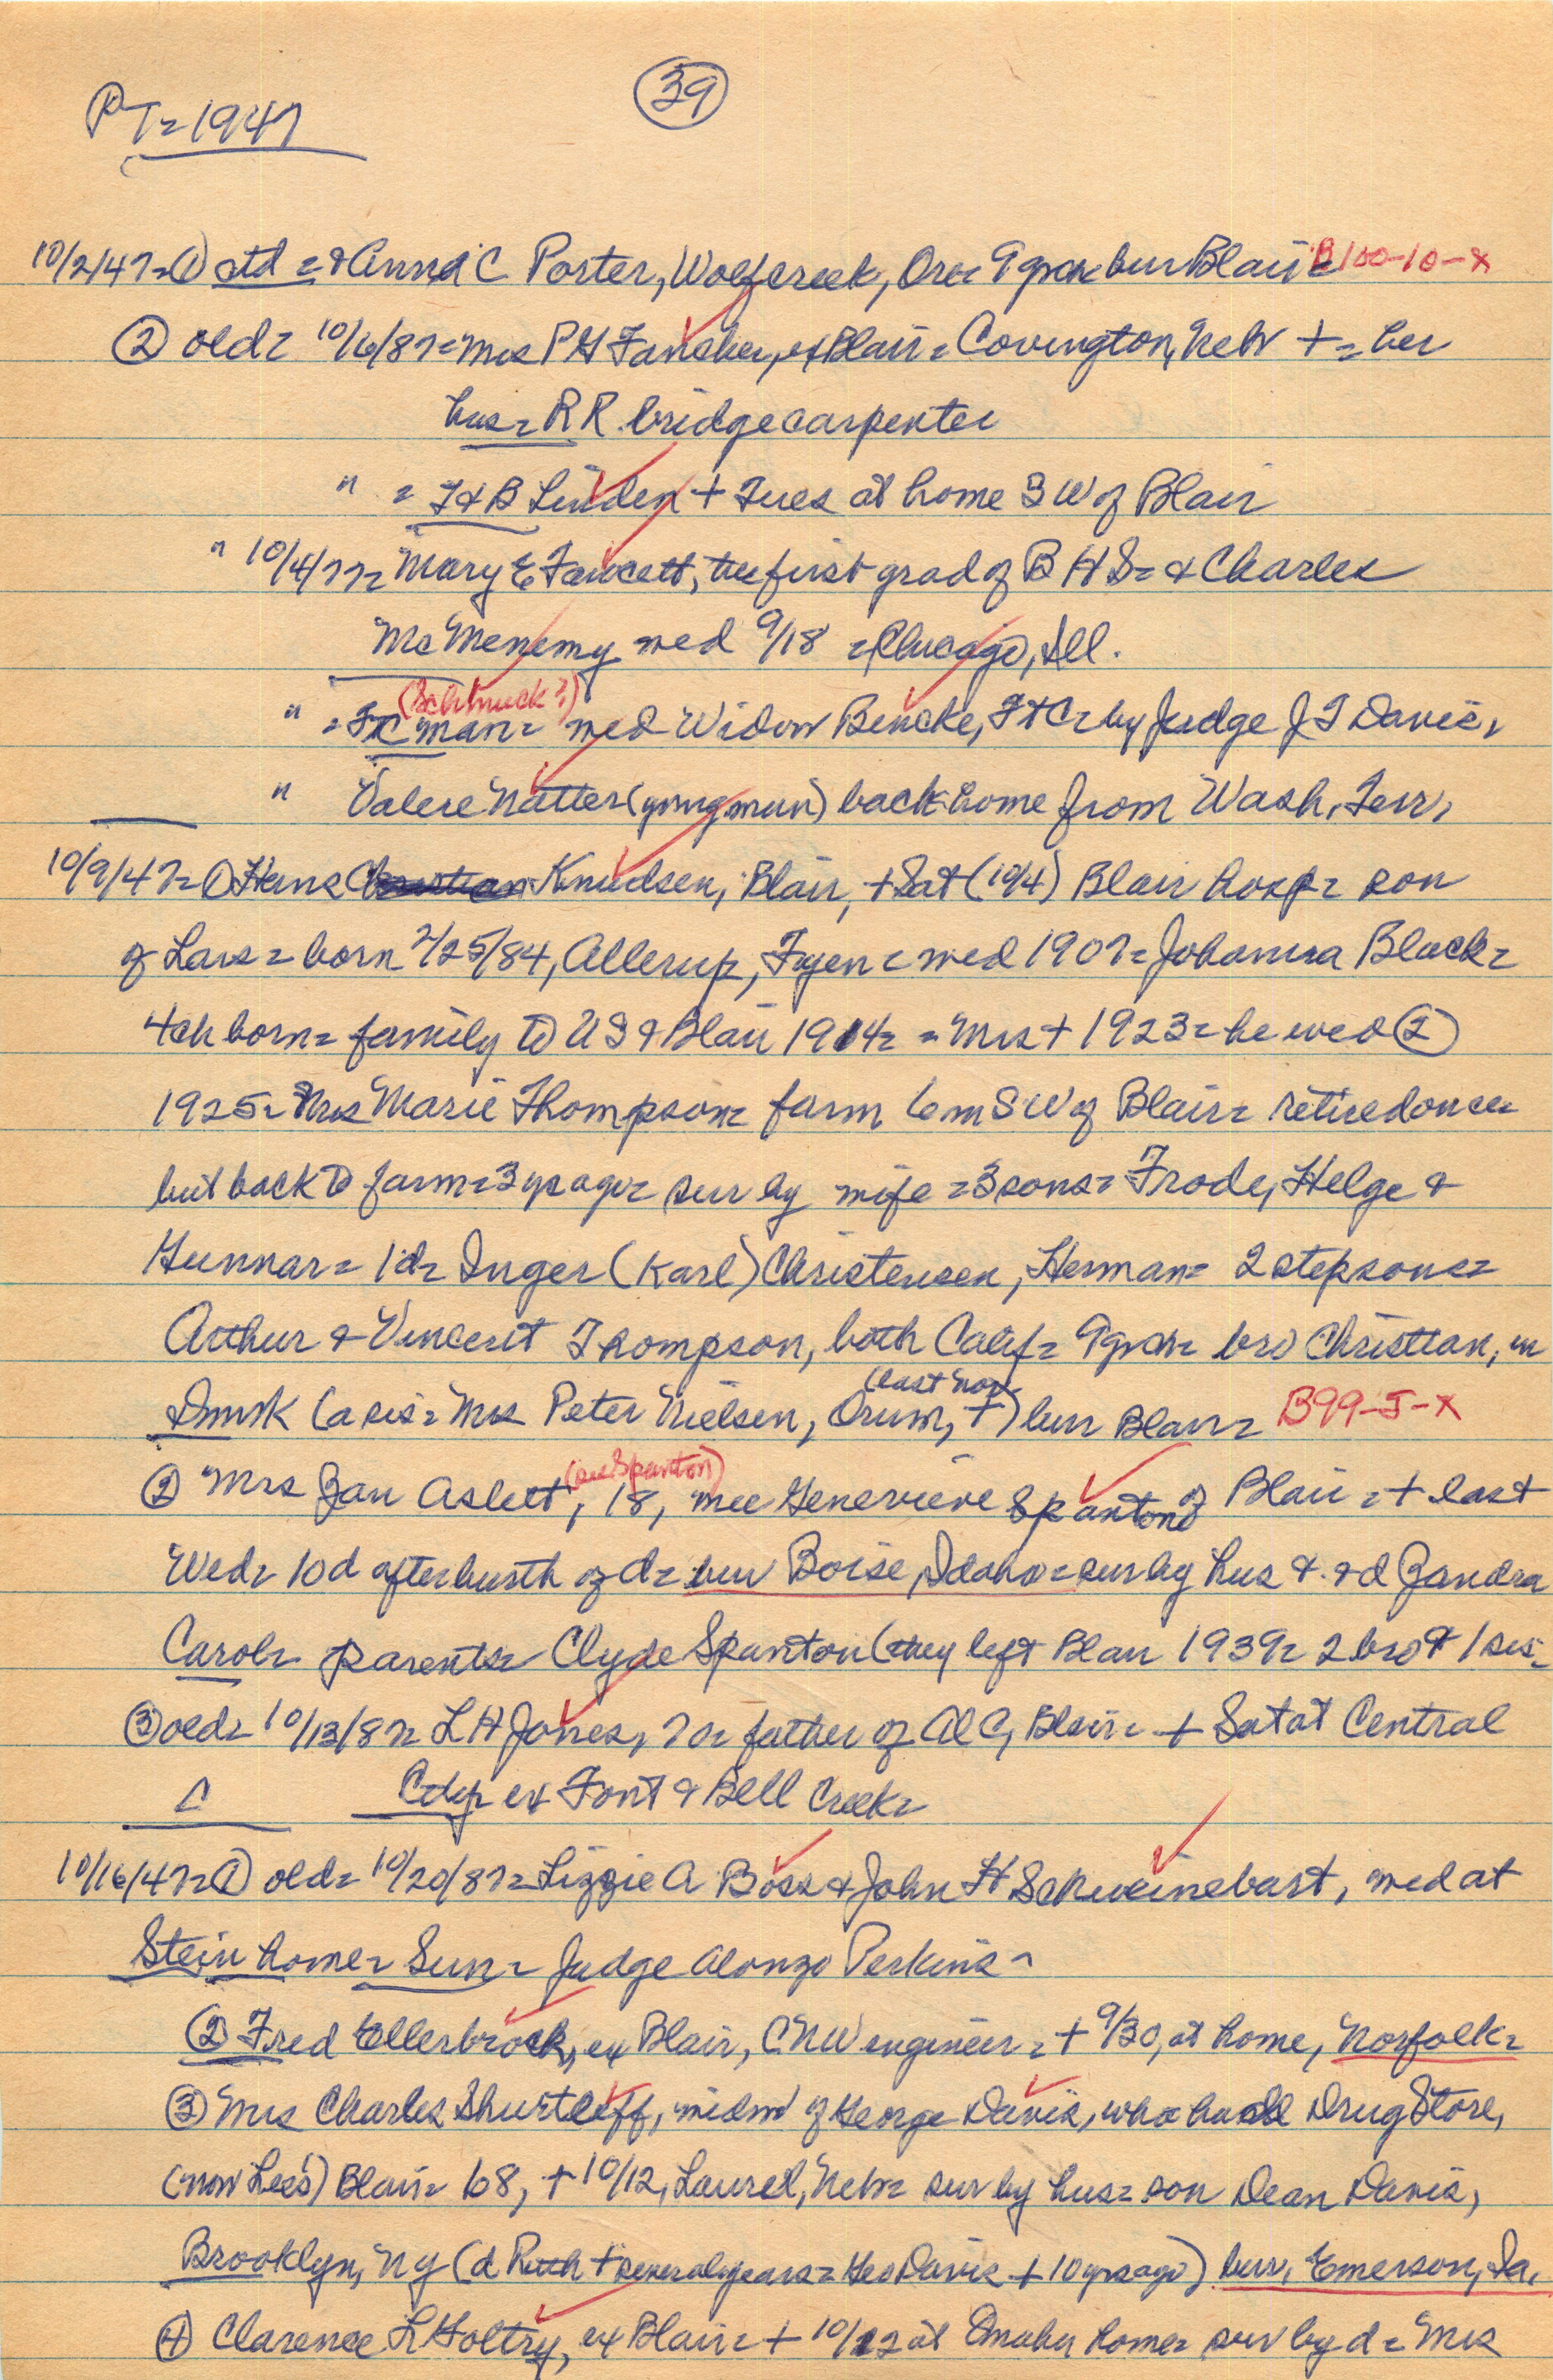 39
PT = 1947
10/2/47 = ① std = & Anna C Porter, Wolfcreek, Ore = 9 grch bur Blair = B100-10-X
② old = 10/6/87 = Mrs P G Fancher, ex Blair = Covington, Nebr + = her
hus = RR. bridge carpenter
" = Linden + Tues at home 3 W of Blair
" 10/4/77 = Mary E Fawcett, the first grad of B H S = & Charles
McMenemy wed 9/18 = Chicago, Ill.
(Schmuck?)
" = Ft C man = wed Widow Bencke, Ft C = by Judge J S Davis,
" Valere Natter (young man) back home from Wash, Terr,
10/9/47 = ① Hans Knudsen, Blair, + Sat (10/4) Blair hosp = son
of Lars = born 2/25/84, Allerup, Fyen = wed 1907 = Johanna Black =
4 ch born = family to US & Blair 1914 = = Mrs + 1923 = he wed ②
1925 = Mrs Marie Thompson = farm 6 m SW of Blair = retired once
but back to farm = 3 yrs ago = sur by wife = 3 sons = Frode, Helge &
Gunnar = 1 d = Inger (Karl) Christensen, Herman = 2 stepsons =
Arthur & Vincent Thompson, both Calif = 9 grch = bro Christian, in
(last Nov.
Dnmk (a sis = Mrs Peter Nielsen, Orum, +) bur Blair = B99-5-X
(see Spanton)
② Mrs Jan Aslett, 18, nee Genevieve Spanton of Blair = + last
Wed = 10 d after birth of d = bur Boise, Idaho = sur by hus & = d Jandra
Carol = parents = Clyde Spanton (they left Blair 1939 = 2 bro & 1 sis =
③ old = 10/13/87 = L H Jones, 70 = father of Al C, Blair = + Sat at Central
City = ex Font & Bell Creek =
10/16/47 = ① old = 10/20/87 = Lizzie A Boss & John H Schweinebart, wed at
Stein home = Sun = Judge Alonzo Perkins =
② Fred Ellerbrock, ex Blair, CNW engineer = + 9/30, at home, Norfolk =
③ Mrs Charles Shurtleff, widow of George Davis, who had Drug Store,
(now Lee's) Blair = 68, + 10/12, Laurel, Nebr = sur by hus = son Dean Davis,
Brooklyn, NY (d Ruth + several years = Geo Davis + 10 yrs ago) bur, Emerson, Ia,
④ Clarence L Holtry, ex Blair = + 10/12 at Omaha home = sur by d = Mrs